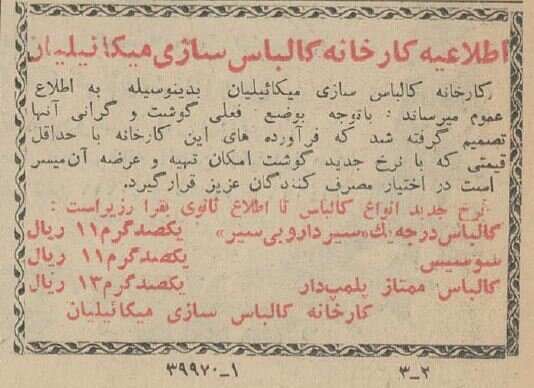 اطلاعیه کارخانه کالباس سازی میکائیلیان
کارخانه کالباس سازی میکائیلیان بدینوسیله به اطلاع
عموم میرساند : باتوجه بوضع فعلی گوشت و گرانی آنها
تصمیم گرفته شد که فرآورده های این کارخانه با حداقل
قیمتی که با نرخ جدید گوشت امکان تهیه و عرضه آن میسر
است در اختیار مصرف کنندگان عزیز قرار گیرد.
نرخ جدید انواع کالباس تا اطلاع ثانوی بقرار زیر است :
کالباس درجه یك «سیردار و بی سیر» یکصد گرم ۱۱ ریال
سوسیس یکصد گرم ۱۱ ریال
کالباس ممتاز پلمپ‌دار یکصد گرم ۱۳ ریال
کارخانه کالباس سازی میکائیلیان
۳_۲ ۳۹۹۷۰_۱